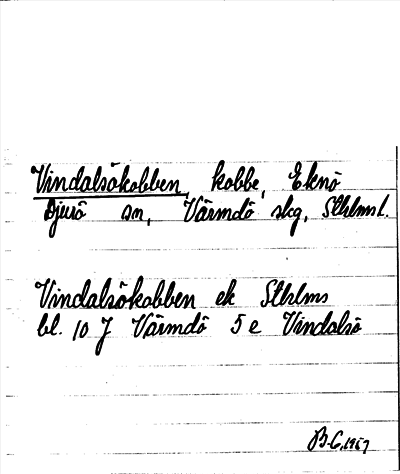 Vindalsökobben, kobbe, Eknö
Djurö sn, Värmdö skg, Sthlms l.
Vindalsökobben ek Sthlms
bl. 10 J Värmdö 5 e Vindalsö
B.C. 1967